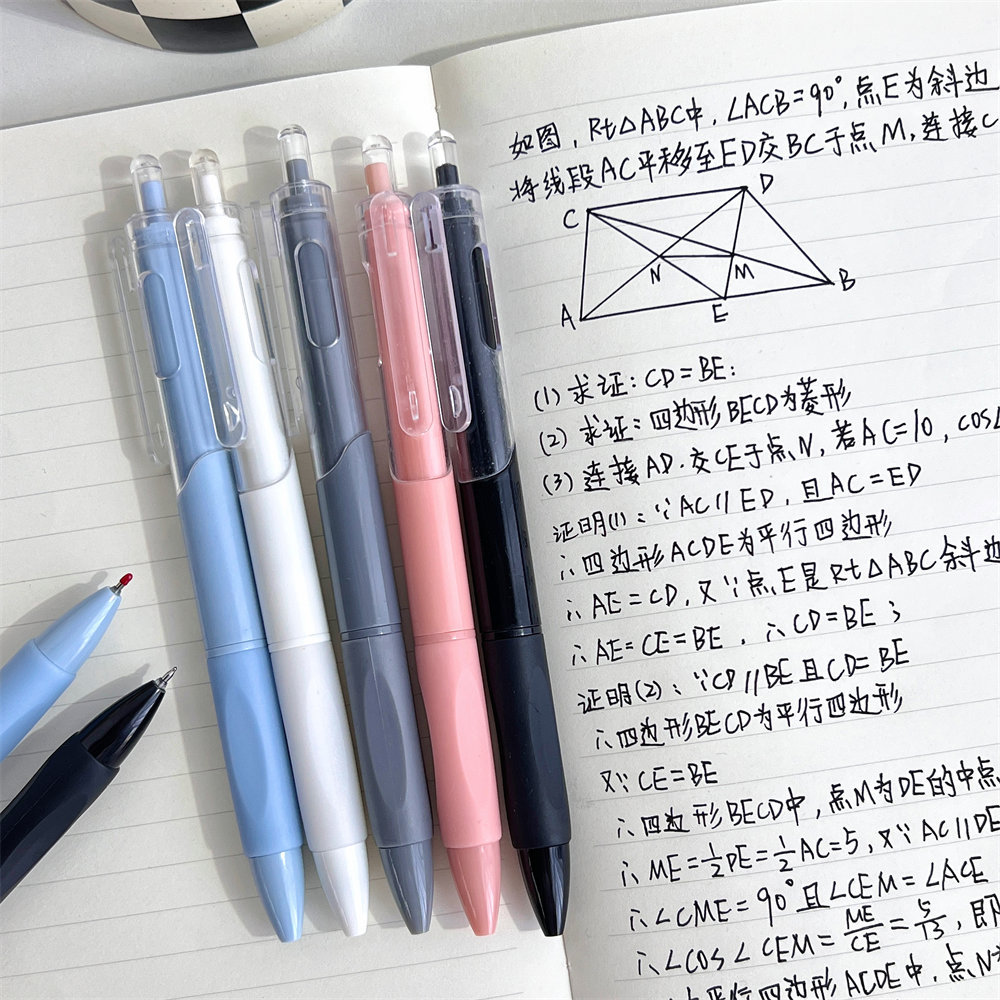 如图，Rt△ABC中，∠ACB=90°，点E为斜边
将线段AC平移至ED交BC于点M，连接C
C
D
N
M
B
A
E
(1) 求证：CD=BE：
(2) 求证：四边形BECD为菱形
(3) 连接AD.交CE于点N，若AC=10，cos∠
证明(1)：∵AC∥ED，且AC=ED
∴四边形ACDE为平行四边形
∴AE=CD，又∵点E是Rt△ABC斜边
∴AE=CE=BE，∴CD=BE；
证明(2)：∵CD∥BE且CD=BE
∴四边形BECD为平行四边形
又∵CE=BE
∴四边形BECD中，点M为DE的中点
∴ME=1/2DE=1/2AC=5，又∵AC∥DE
∴∠CME=90°且∠CEM=∠ACE
∴∠COS∠CEM=ME/CE=5/13，即
平行四边形ACDE中，点N为